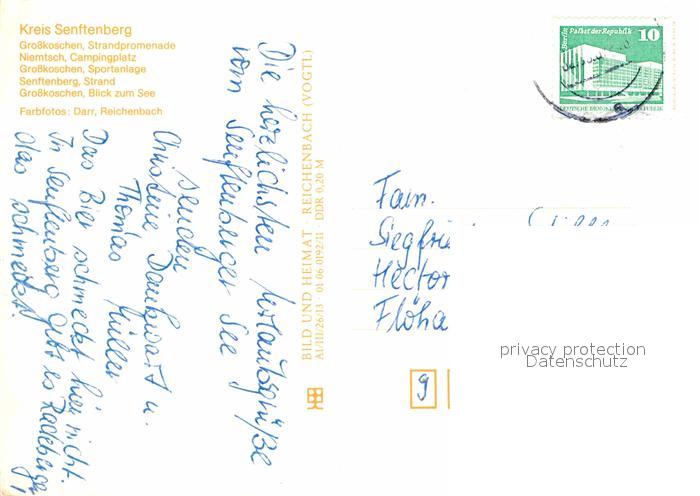 Kreis Senftenberg
Großkoschen, Strandpromenade
Niemtsch, Campingplatz
Großkoschen, Sportanlage
Senftenberg, Strand
Großkoschen, Blick zum See
Farbfotos: Darr, Reichenbach
Die herzlichsten Urlaubsgrüße
vom Senftenberger See
senden
Christine Dankwart u.
Thomas Müller
Das Bier schmeckt hier nicht.
In Senftenberg gibt es Radeberger,
das schmeckt!
BILD UND HEIMAT REICHENBACH (VOGTL)
A1/III/26/13 · 01 06 0192/11 DDR 0,20 M
Berlin Palast der Republik
10
Fam.
Siegfrie
Hector
Flöha
9
privacy protection
Datenschutz